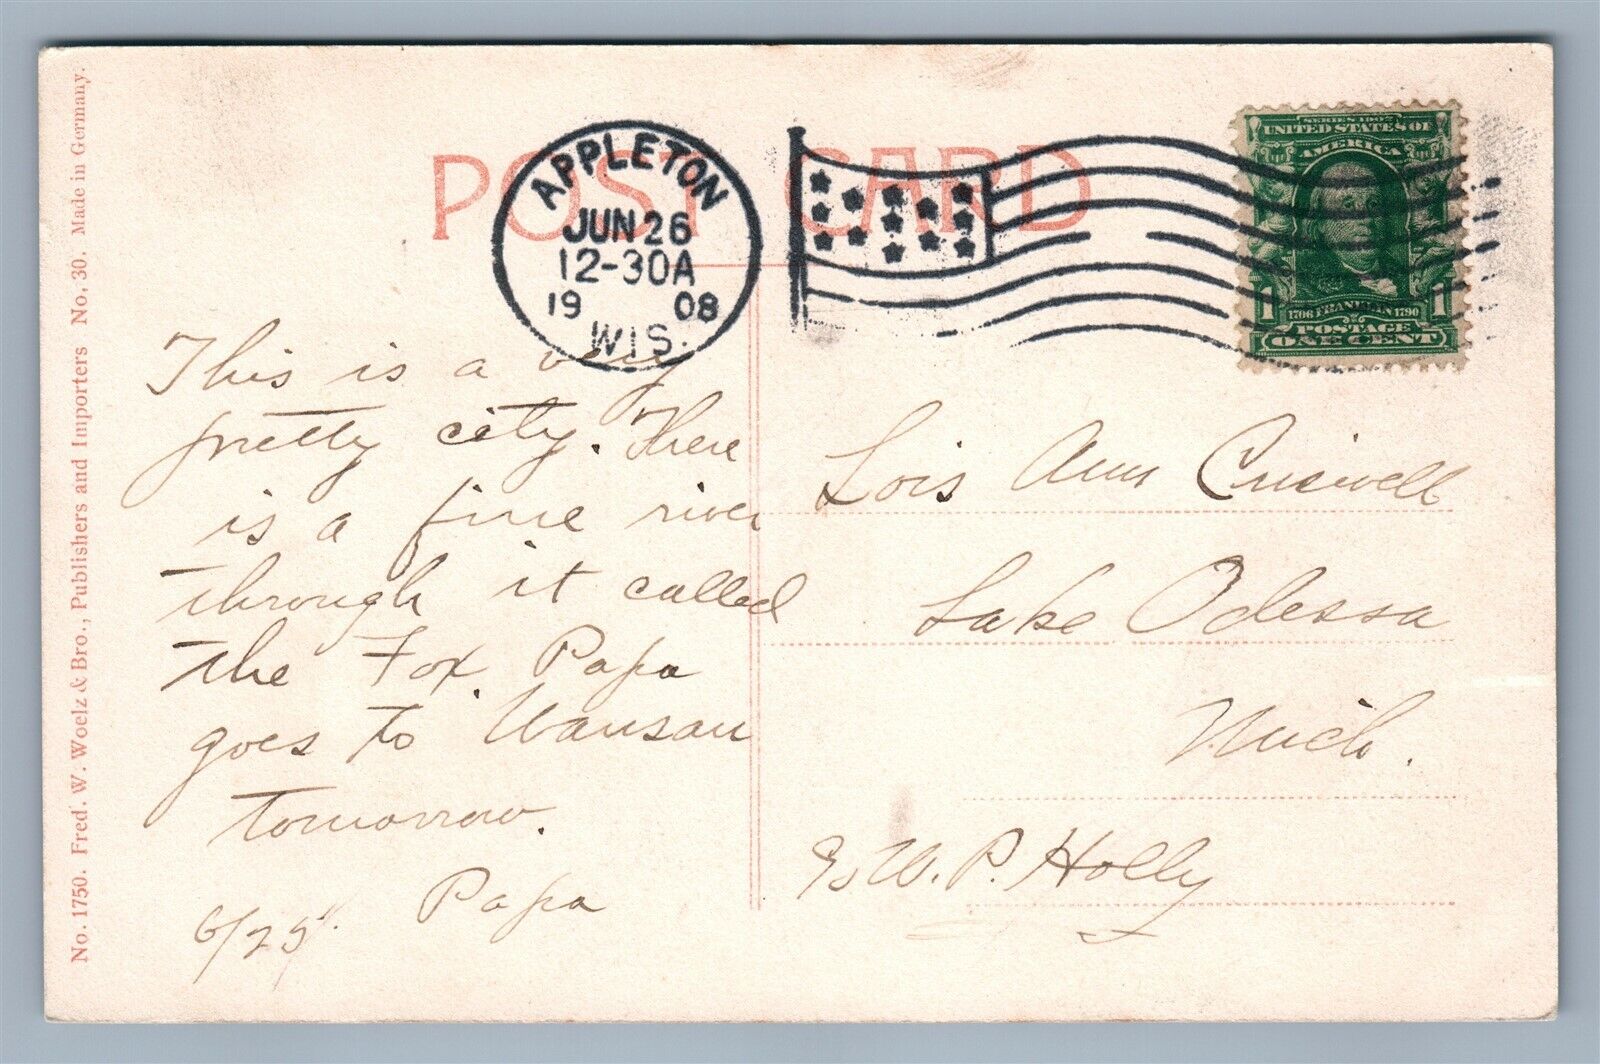 POST CARD
APPLETON
JUN 26
12-30A
19 08
WIS.
SERIES 1902
UNITED STATES OF
AMERICA
1 1706 FRANKLIN 1790 1
POSTAGE
ONE CENT
This is a very
pretty city. There
is a fine river
through it called
the Fox. Papa
goes to Wausau
tomorrow.
Papa
6/25".
Lois Ann Criswell
Lake Odessa
Mich.
℅ W. P. Holly
No. 1750. Fred. W. Woelz & Bro., Publishers and Importers No. 30. Made in Germany.